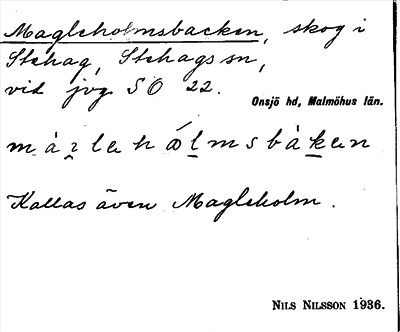 Magleholmsbacken, skog i
Stehag, Stehags sn,
vid jvg. SO 22.
Onsjö hd, Malmöhus län.
Kallas även Magleholm.
NILS NILSSON 1936.